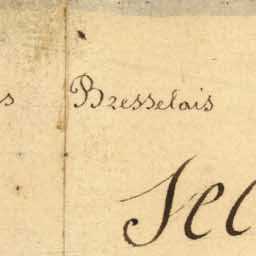 s Bresselais
Sec